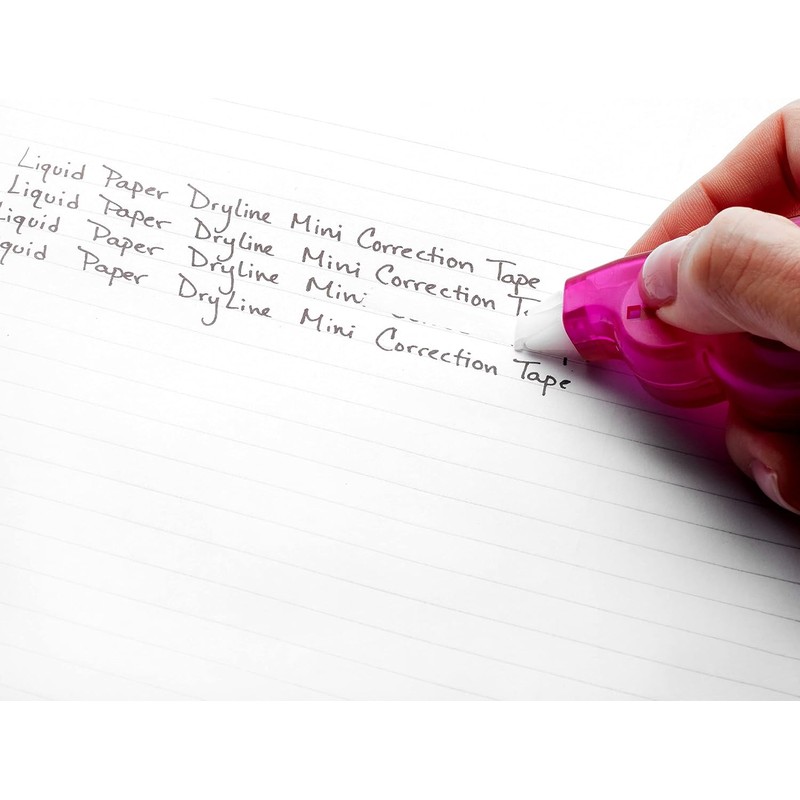 Liquid Paper Dryline Mini Correction Tape
Liquid Paper Dryline Mini Correction
Liquid Paper Dryline Mini
Paper DryLine Mini Correction Tape